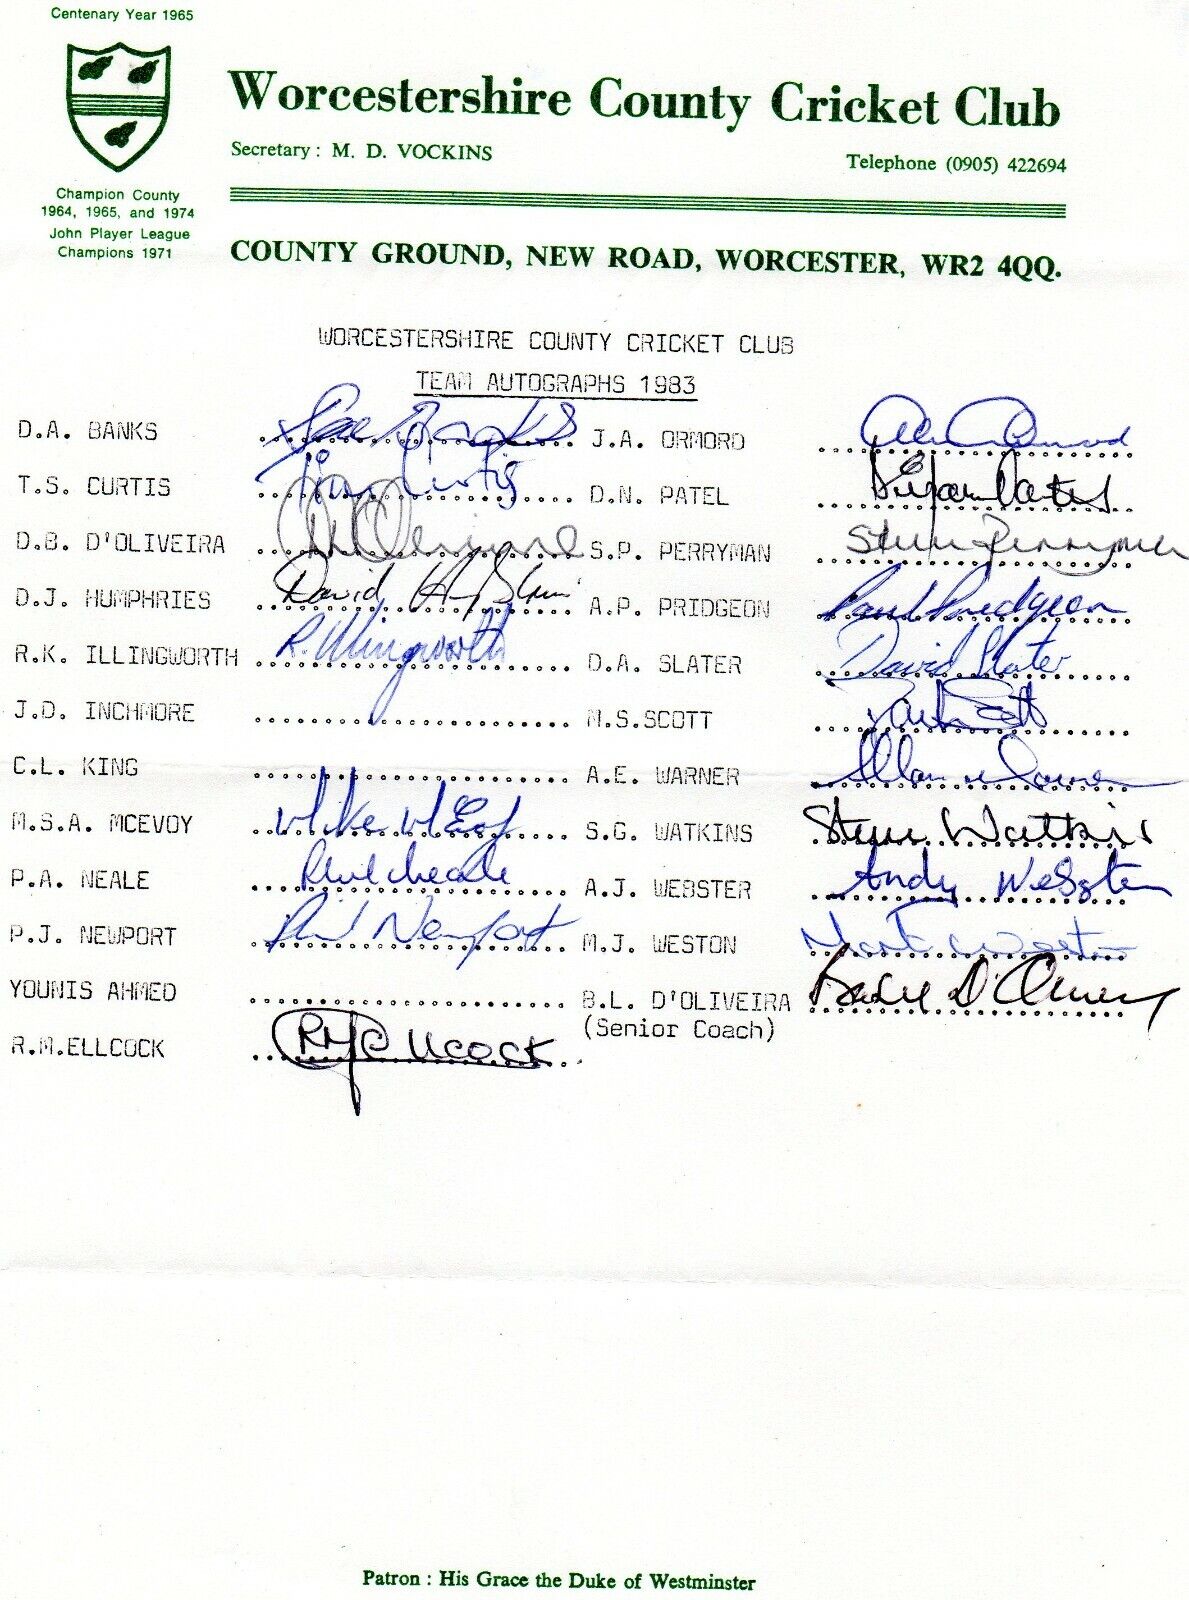 Centenary Year 1965
Worcestershire County Cricket Club
Secretary : M. D. VOCKINS
Telephone (0905) 422694
Champion County
1964, 1965, and 1974
John Player League
Champions 1971
COUNTY GROUND, NEW ROAD, WORCESTER, WR2 4QQ.
WORCESTERSHIRE COUNTY CRICKET CLUB
TEAM AUTOGRAPHS 1983
D.A. BANKS Dave Banks J.A. ORMORD Alan Ormrod
T.S. CURTIS Tim Curtis D.N. PATEL Dipak Patel
D.B. D'OLIVEIRA D'Oliveira S.P. PERRYMAN Steve Perryman
D.J. HUMPHRIES David Humphries A.P. PRIDGEON Paul Pridgeon
R.K. ILLINGWORTH R. Illingworth D.A. SLATER David Slater
J.D. INCHMORE M.S.SCOTT Mark Scott
C.L. KING A.E. WARNER Allan Warner
M.S.A. MCEVOY Mike McEvoy S.G. WATKINS Steve Watkins
P.A. NEALE Phil Neale A.J. WEBSTER Andy Webster
P.J. NEWPORT Phil Newport M.J. WESTON Martin Weston
YOUNIS AHMED B.L. D'OLIVEIRA Basil D'Oliveira
(Senior Coach)
R.M.ELLCOCK RM Ellcock
Patron : His Grace the Duke of Westminster